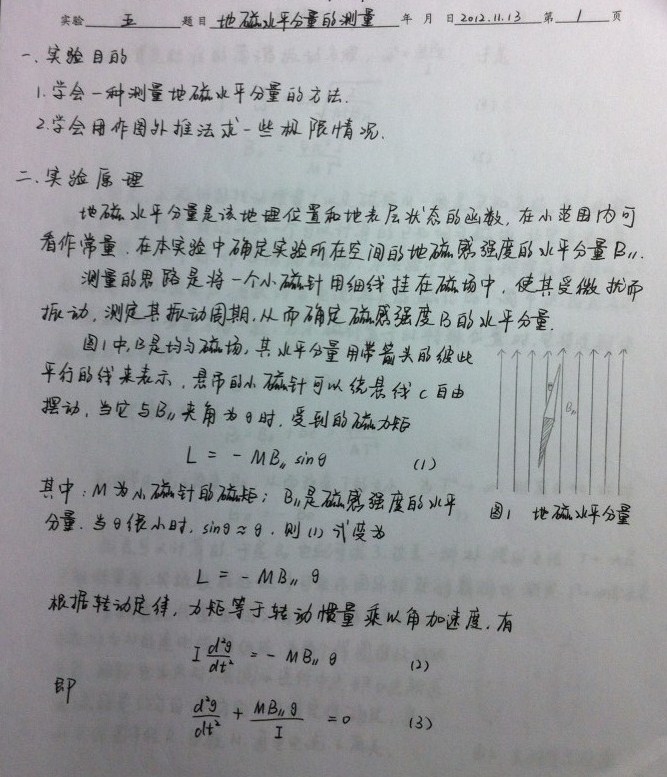 实验 五 题目 地磁水平分量的测量 年 月 日 2012.11.13 第 1 页
一、实验目的
1.学会一种测量地磁水平分量的方法.
2.学会用作图外推法求一些极限情况.
二、实验原理
地磁水平分量是该地理位置和地表层状态的函数,在小范围内可
看作常量.在本实验中确定实验所在空间的地磁感强度的水平分量B∥.
测量的思路是将一个小磁针用细线挂在磁场中,使其受微扰而
振动,测定其振动周期,从而确定磁感强度B的水平分量.
图1中,B是均匀磁场,其水平分量用带箭头的彼此
平行的线来表示,悬吊的小磁针可以绕悬线c自由
摆动,当它与B∥夹角为θ时,受到的磁力矩
L = - MB∥ sinθ (1)
其中:M为小磁针的磁矩;B∥是磁感强度的水平
分量.当θ很小时,sinθ≈θ.则(1)式变为
θ
B∥
图1 地磁水平分量
L = - MB∥ θ
根据转动定律,力矩等于转动惯量乘以角加速度,有
I d²θ/dt² = - MB∥ θ (2)
即
d²θ/dt² + MB∥θ/I = 0 (3)